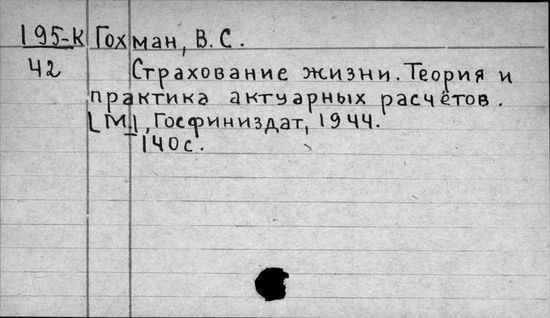 195-К Гохман, В. С.
42 Страхование жизни. Теория и
практика актуарных расчётов.
[М.], Госфиниздат, 1944.
140 с.